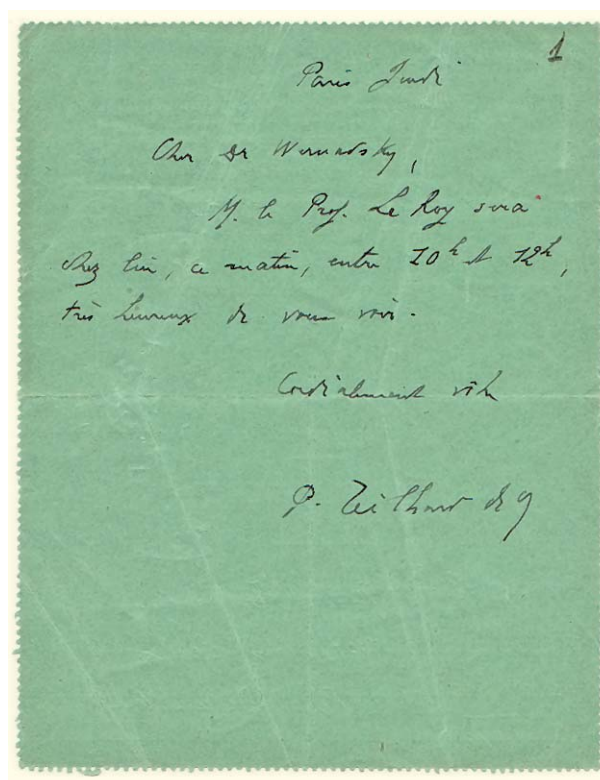 1
Paris Jeudi
Cher Dr Wernadsky,
M. le Prof. Le Roy sera
chez lui, ce matin, entre 10h et 12h,
très heureux de vous voir.
Cordialement vôtre
P. Teilhard de